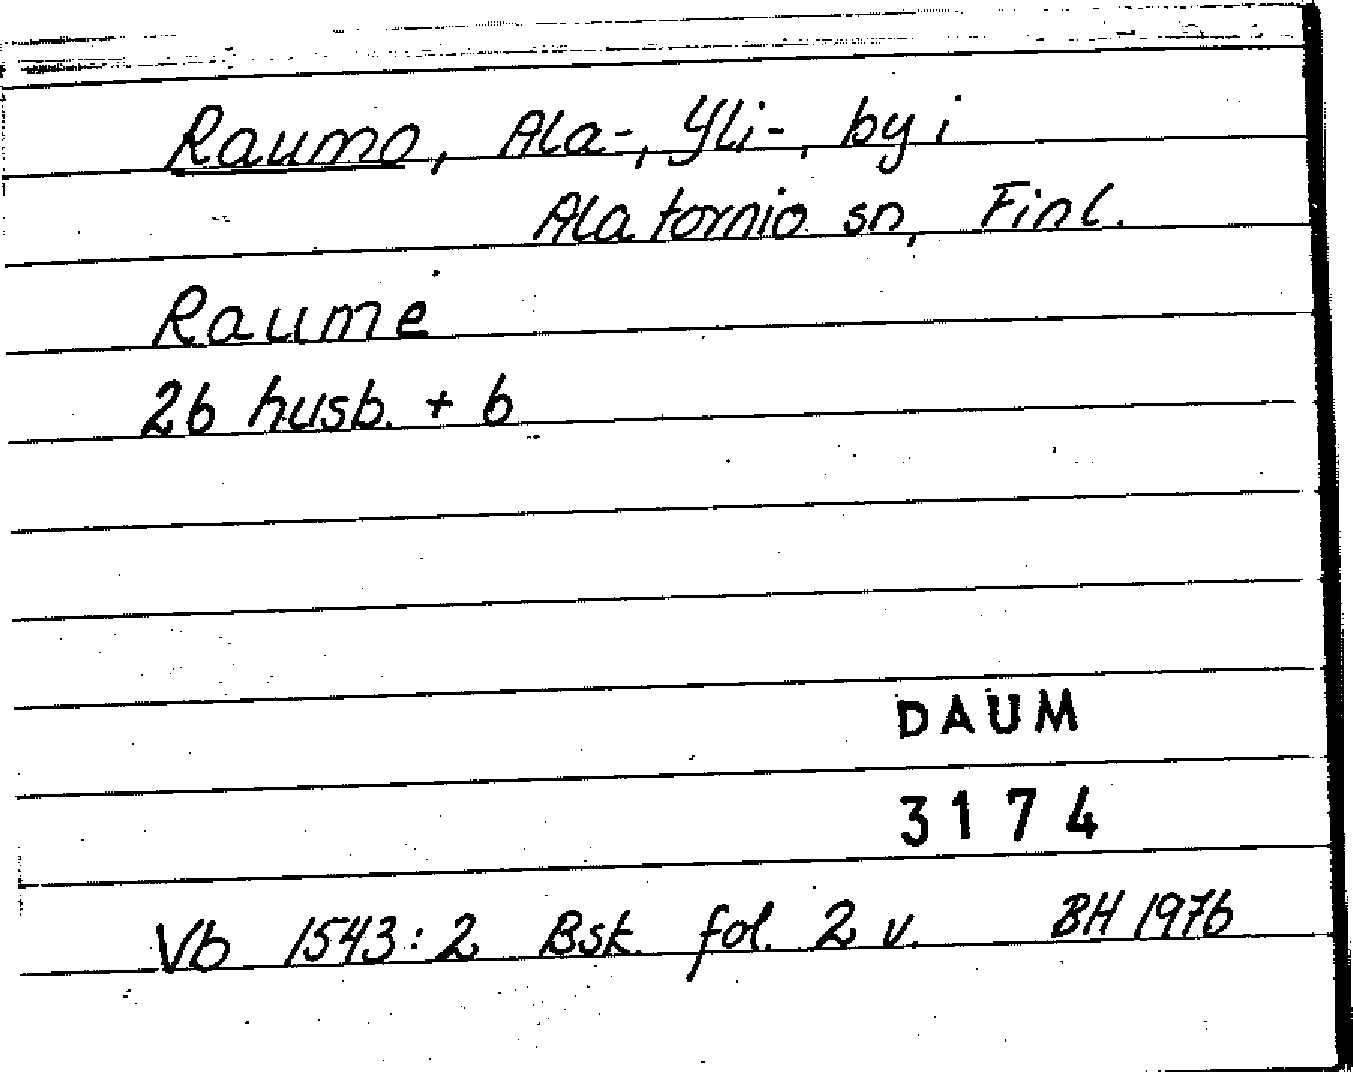 Raumo, Ala-, Yli-, by i
Alatornio sn, Finl.
Raume
26 husb. + 6
DAUM
3174
Vb 1543:2 Bsk. fol. 2 v. BH 1976